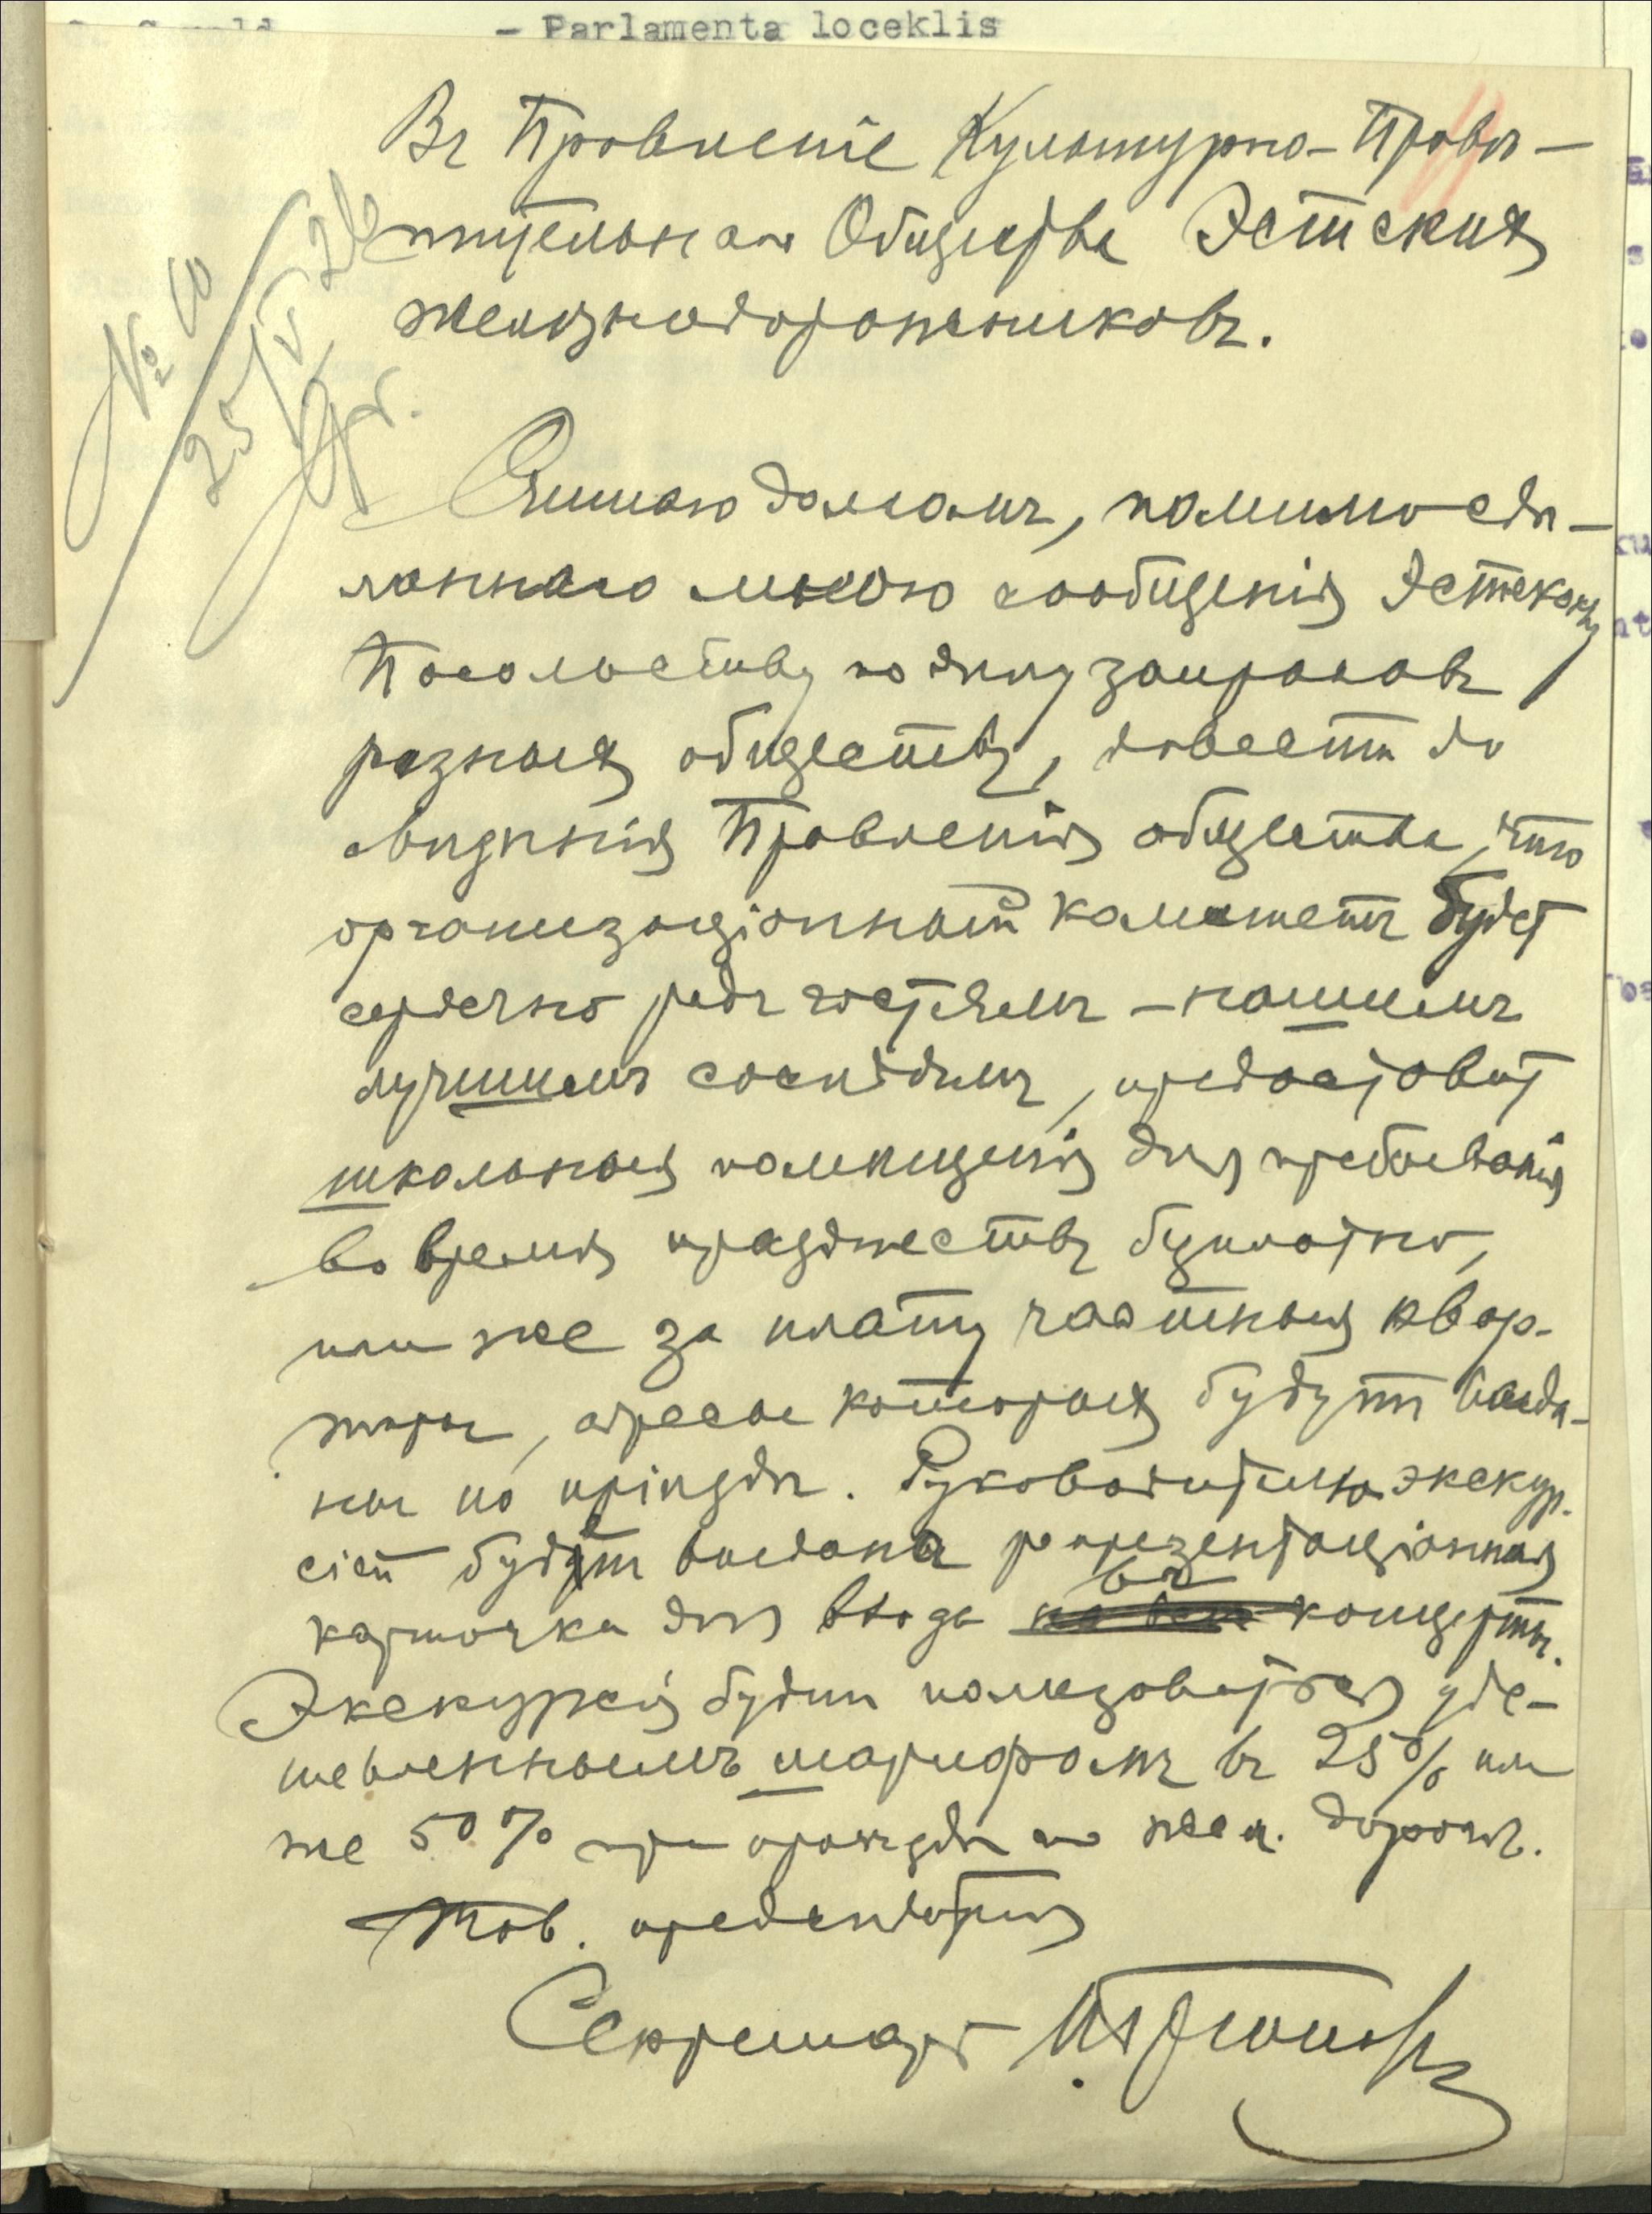 - Parlamenta loceklis
Въ Правленіе Культурно-Просвѣ-
тительнаго Общества Эстскихъ
желѣзнодорожниковъ.
№ 60
25/V 26
Считаю долгомъ, помимо сдѣ-
ланнаго мною сообщенія Эстскому
Посольству по дѣлу запросовъ
разныхъ обществъ, довести до
свидѣнія Правленія общества, что
организаціонный комитетъ будет
сердечно радъ гостямъ - нашимъ
лучшимъ сосѣдямъ, предоставит
школьныя помѣщенія для пребыванія
во время празднествъ безплатно,
или же за плату частныя квар-
тиры, адресы которыхъ будутъ выда-
ны по пріѣздѣ. Руководителю экскур-
сіей будетъ выдана репрезентаціонная
карточка для входа въ концерты.
Экскурсія будетъ пользоваться уде-
шевленнымъ тарифомъ въ 25% или
же 50% при проѣздѣ по жел. дорогѣ.
Тов. предсѣдателя
Секретарь